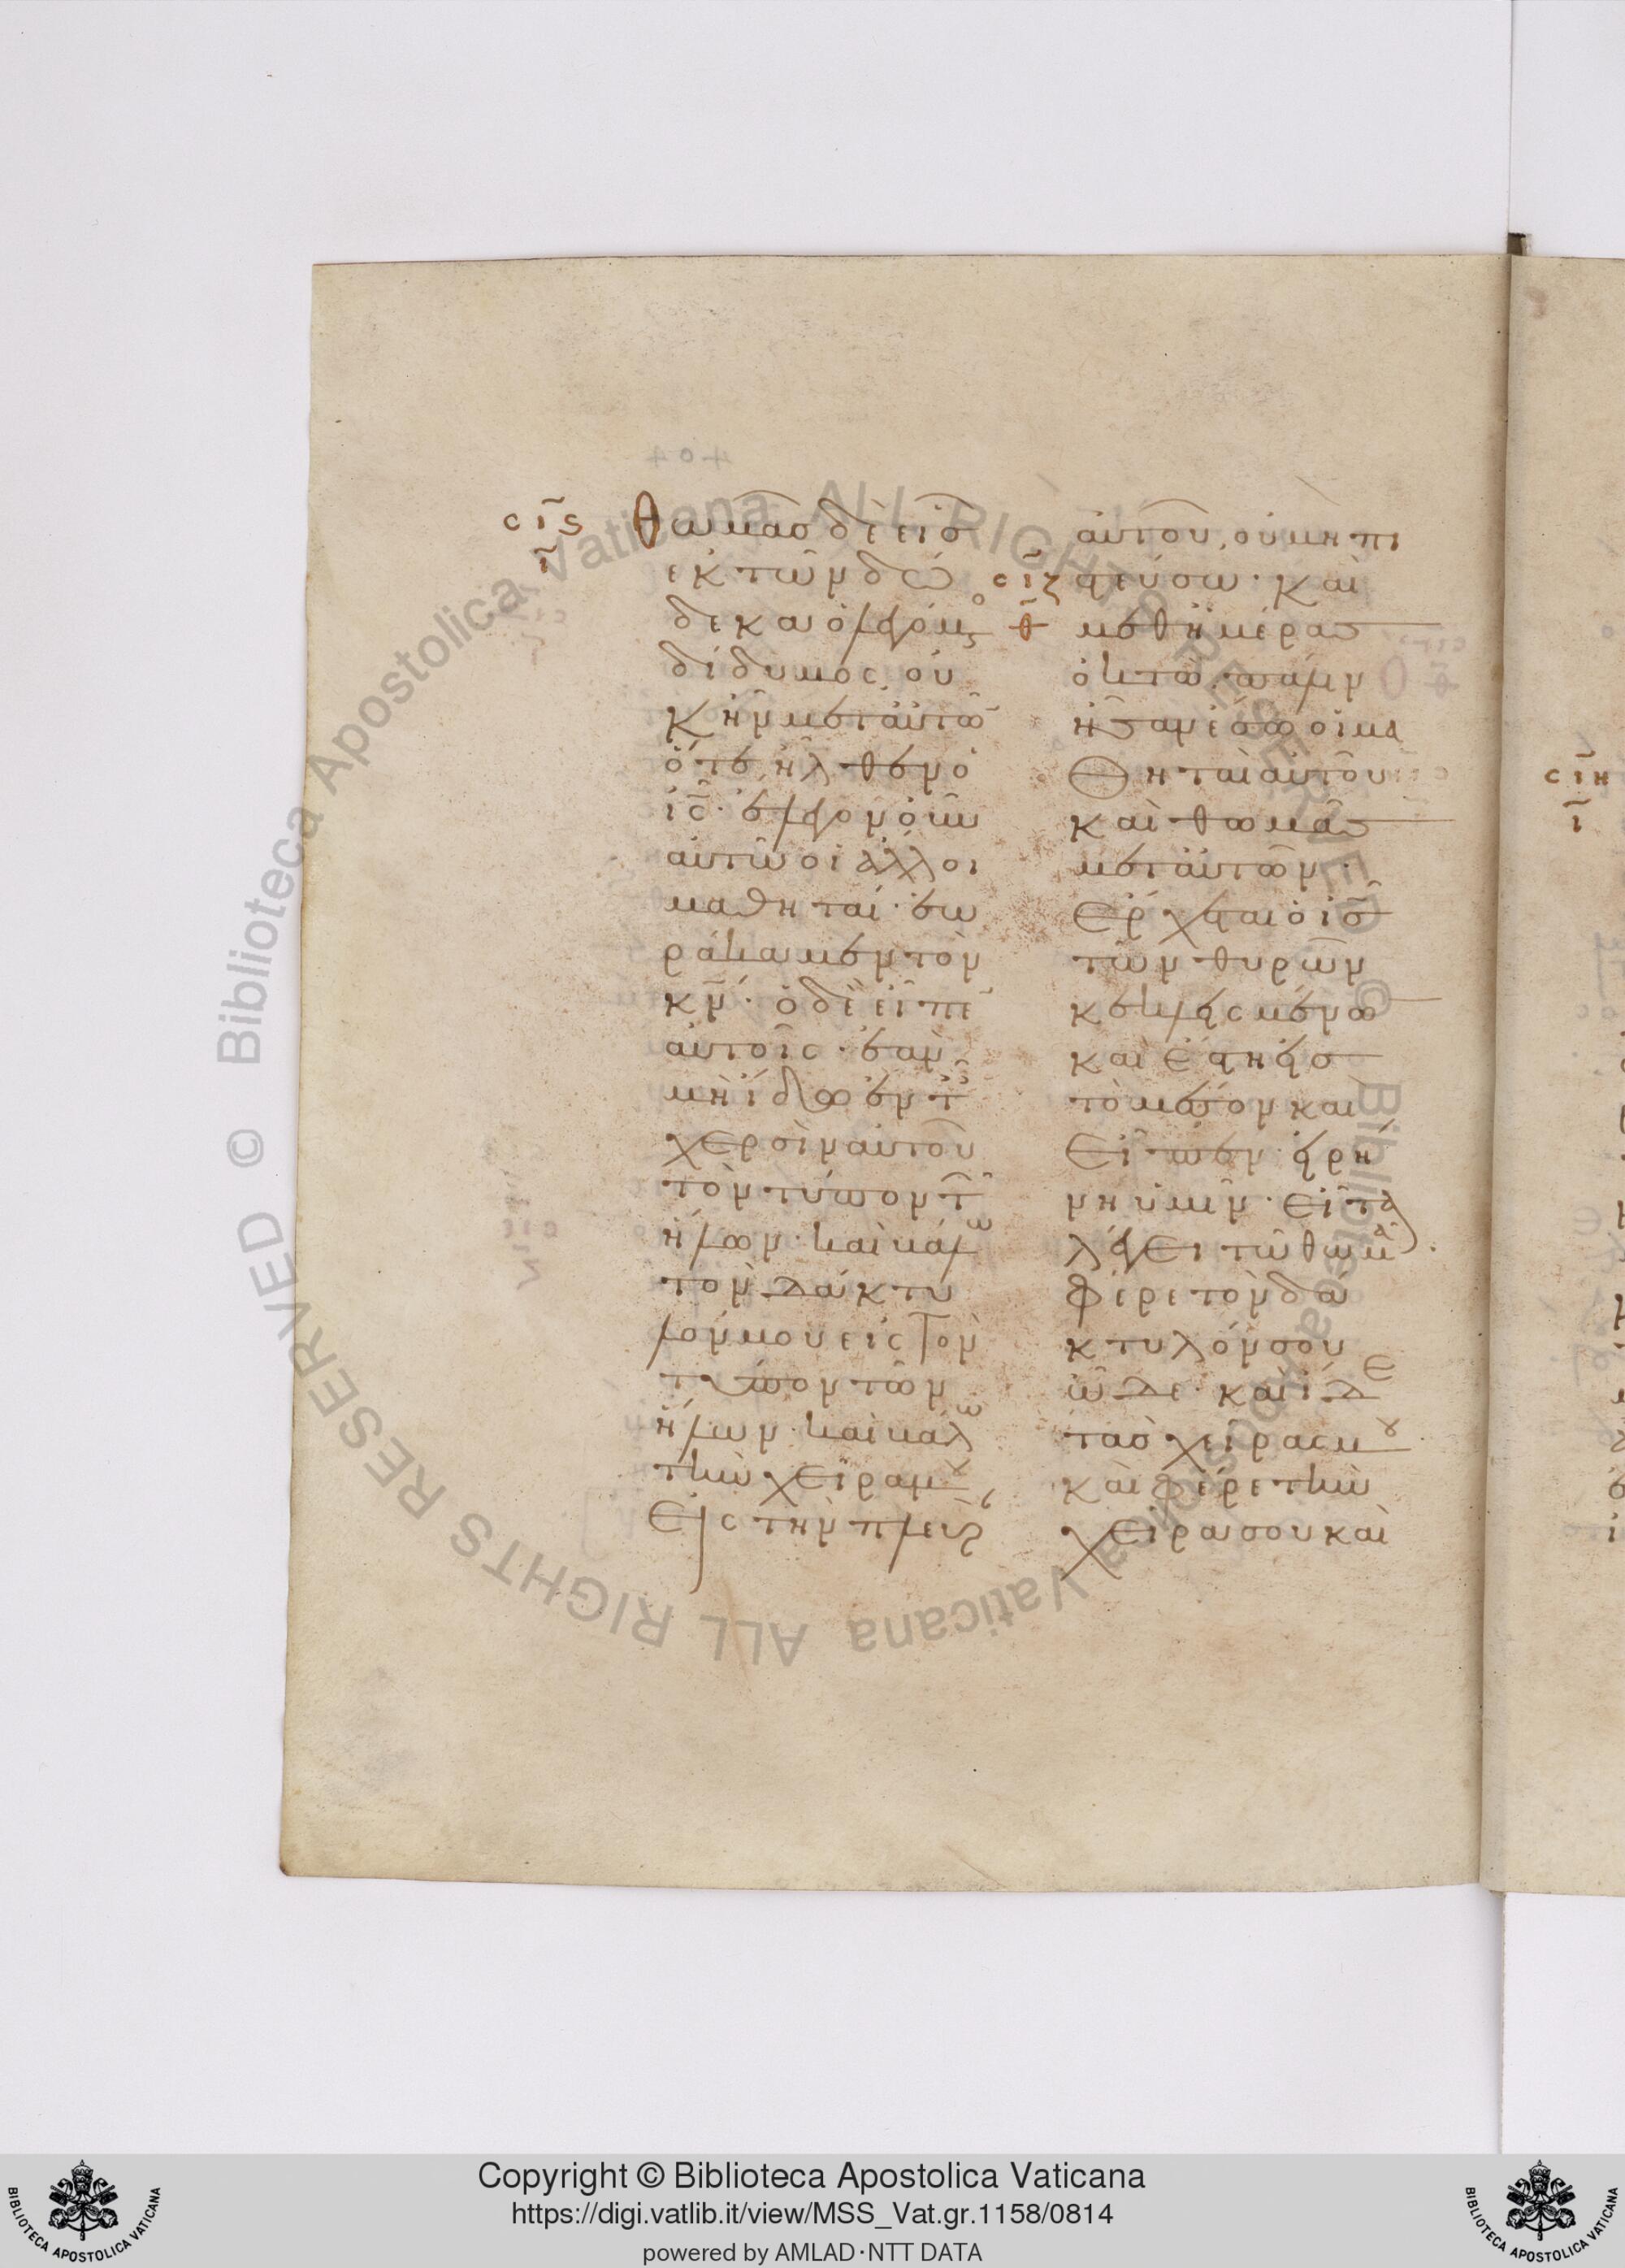 σις
ι
θωμᾶσ δὲ εἷσ
ἐκ τῶν δώ
δεκα ὁ λεγόμς
δίδυμος, οὐ
κ ἦν μετ αὐτῶ
ὅτε ἦλθεν ὁ
ις· ἔλεγον οὖν
αὐτῶ οἱ ἄλλοι
μαθηταί· ἑω
ράκαμεν τὸν
κν· ὁ δὲ εἶπε
αὐτοῖς· ἐὰν
μὴ ἴδω ἐν τ
χερσὶν αὐτοῦ
τὸν τύπον τ
ἥλων· καὶ βάλω
τὸν δάκτυ
λόν μου εἰς τὸν
τύπον τῶν
ἥλων· καὶ βάλω
τὴν χεῖρα μου
εἰς τὴν πλευρ
αὐτοῦ, οὐ μὴ πι
σιζ στεύσω· καὶ
θ μεθ ἡμέρασ
ὀκτὼ, πάλιν
ἦσαν ἔσω οἱ μα
θηταὶ αὐτοῦ
καὶ θωμᾶσ
μετ αὐτῶν·
ἔρχεται ὁ ισ
τῶν θυρῶν
κεκλεισμένω
καὶ ἔστη εἰσ
τὸ μέσον καὶ
εἶπεν· εἰρή
νη ὑμῖν· εἶτα
λέγει τῶ θωμᾶ·
φέρε τὸν δά
κτυλόν σου
ὧδε· καὶ ἴδε
τὰσ χεῖρας μου
καὶ φέρε τὴν
χεῖρα σου καὶ
σιη
ι
Copyright © Biblioteca Apostolica Vaticana
https://digi.vatlib.it/view/MSS_Vat.gr.1158/0814
powered by AMLAD·NTT DATA
BIBLIOTECA APOSTOLICA VATICANA
BIBLIOTECA APOSTOLICA VATICANA
Biblioteca Apostolica Vaticana ALL RIGHTS RESERVED ©
Biblioteca Apostolica Vaticana ALL RIGHTS RESERVED ©